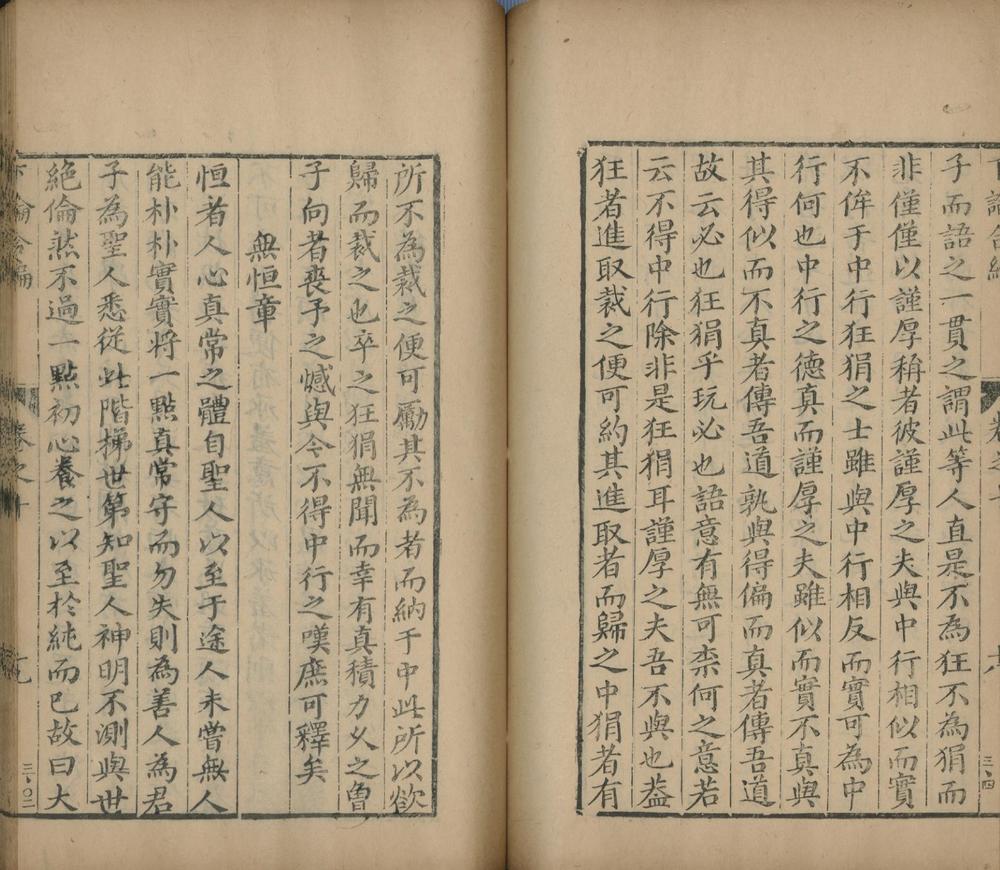 子而語之一貫之謂此等人直是不為狂不為狷而
非僅僅以謹厚稱者彼謹厚之夫與中行相似而實
不侔于中行狂狷之士雖與中行相反而實可為中
行何也中行之德真而謹厚之夫雖似而實不真與
其得似而不真者傳吾道孰與得偏而真者傳吾道
故云必也狂狷乎玩必也語意有無可柰何之意若
云不得中行除非是狂狷耳謹厚之夫吾不與也葢
狂者進取裁之便可約其進取者而歸之中狷者有
所不為裁之便可勵其不為者而納于中此所以欲
歸而裁之也卒之狂狷無聞而幸有真積力久之曾
子向者喪予之憾與今不得中行之嘆庶可釋矣
無恒章
恒者人心真常之體自聖人以至于途人未嘗無人
能朴朴實實將一點真常守而勿失則為善人為君
子為聖人悉從此階梯世第知聖人神明不測與世
絕倫然不過一點初心養之以至於純而已故曰大
卷之十
三、四
三、〇三